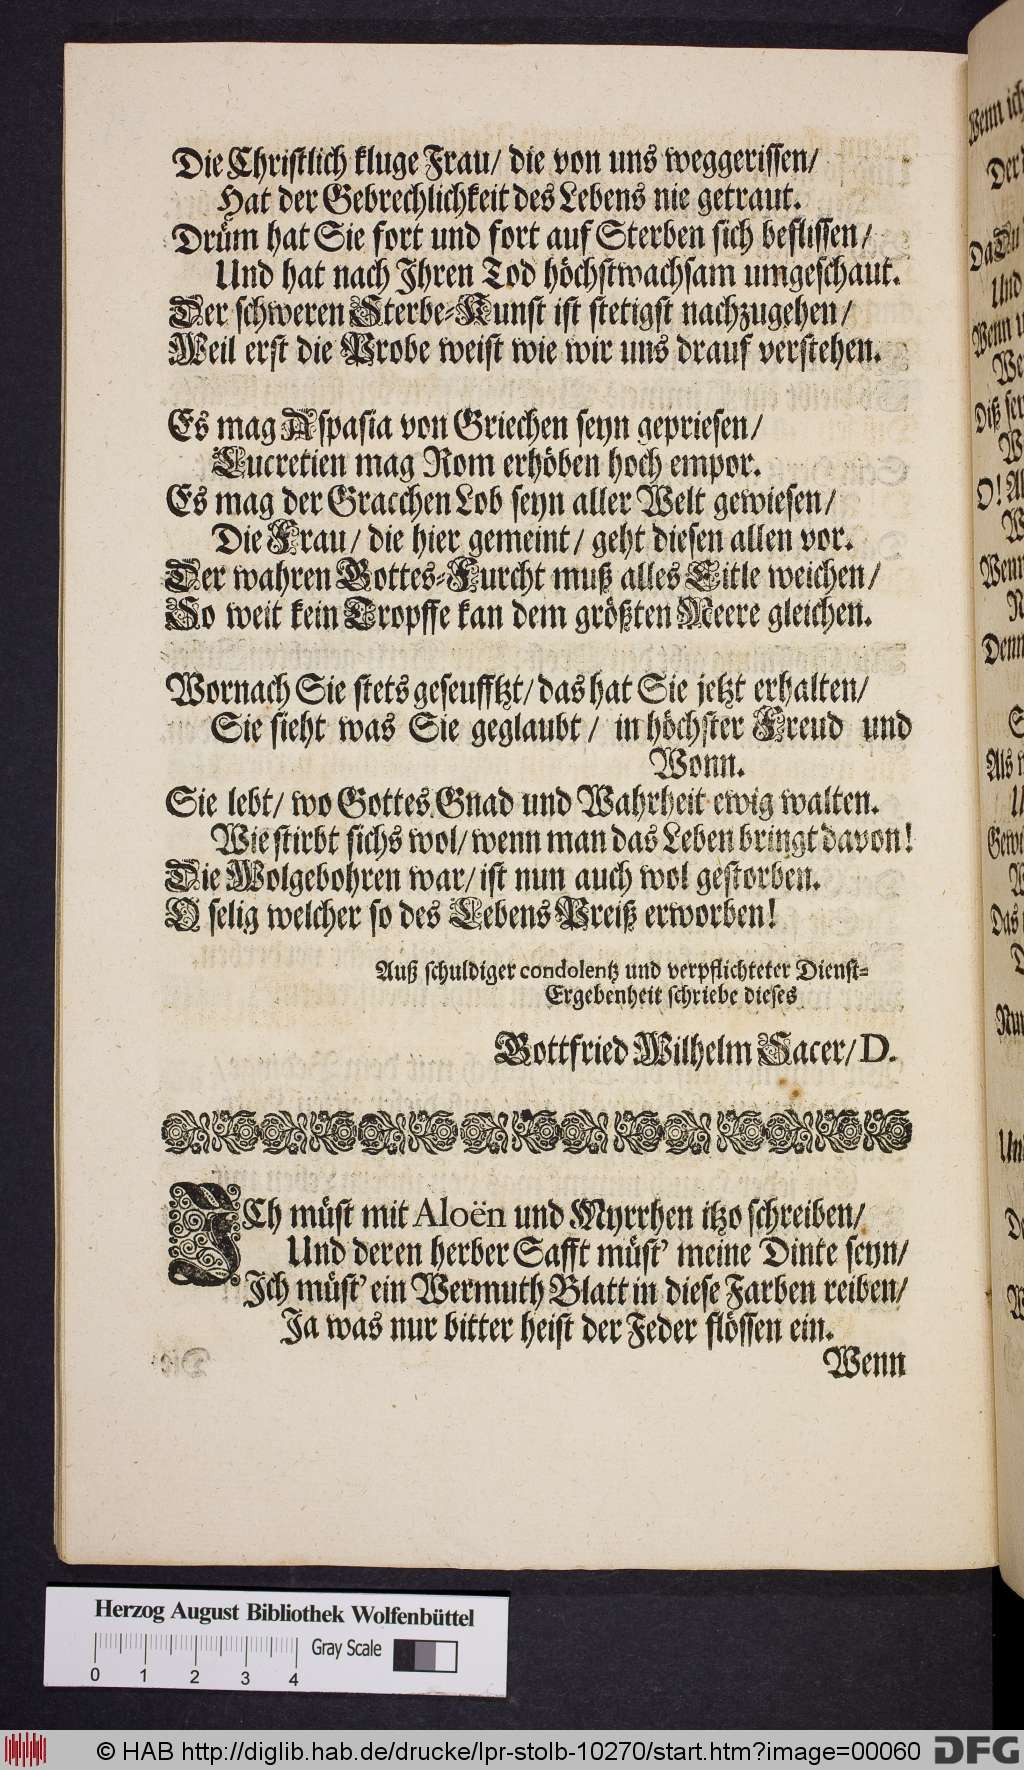 Die Christlich kluge Frau/ die von uns weggerissen/
Hat der Gebrechlichkeit des Lebens nie getraut.
Drüm hat Sie fort und fort auf Sterben sich beflissen/
Und hat nach Ihren Tod höchstwachsam umgeschaut.
Der schweren Sterbe-Kunst ist stetigst nachzugehen/
Weil erst die Probe weist wie wir uns drauf verstehen.
Es mag Aspasia von Griechen seyn gepriesen/
Lucretien mag Rom erhöben hoch empor.
Es mag der Gracchen Lob seyn aller Welt gewiesen/
Die Frau/ die hier gemeint/ geht diesen allen vor.
Der wahren Gottes-Furcht muß alles Eitle weichen/
So weit kein Tropffe kan dem größten Meere gleichen.
Wornach Sie stets geseufftzt/ das hat Sie jetzt erhalten/
Sie sieht was Sie geglaubt/ in höchster Freud und
Wonn.
Sie lebt/ wo Gottes Gnad und Wahrheit ewig walten.
Wie stirbt sichs wol/ wenn man das Leben bringt davon!
Die Wolgebohren war/ ist nun auch wol gestorben.
O selig welcher so des Lebens Preiß erworben!
Auß schuldiger condolentz und verpflichteter Dienst-
Ergebenheit schriebe dieses
Gottfried Wilhelm Sacer/ D.
ICh müst mit Aloën und Myrrhen itzo schreiben/
Und deren herber Safft müst' meine Dinte seyn/
Ich müst' ein Wermuth Blatt in diese Farben reiben/
Ja was nur bitter heist der Feder flössen ein.
Wenn
Herzog August Bibliothek Wolfenbüttel
Gray Scale
0 1 2 3 4
© HAB http://diglib.hab.de/drucke/lpr-stolb-10270/start.htm?image=00060
DFG